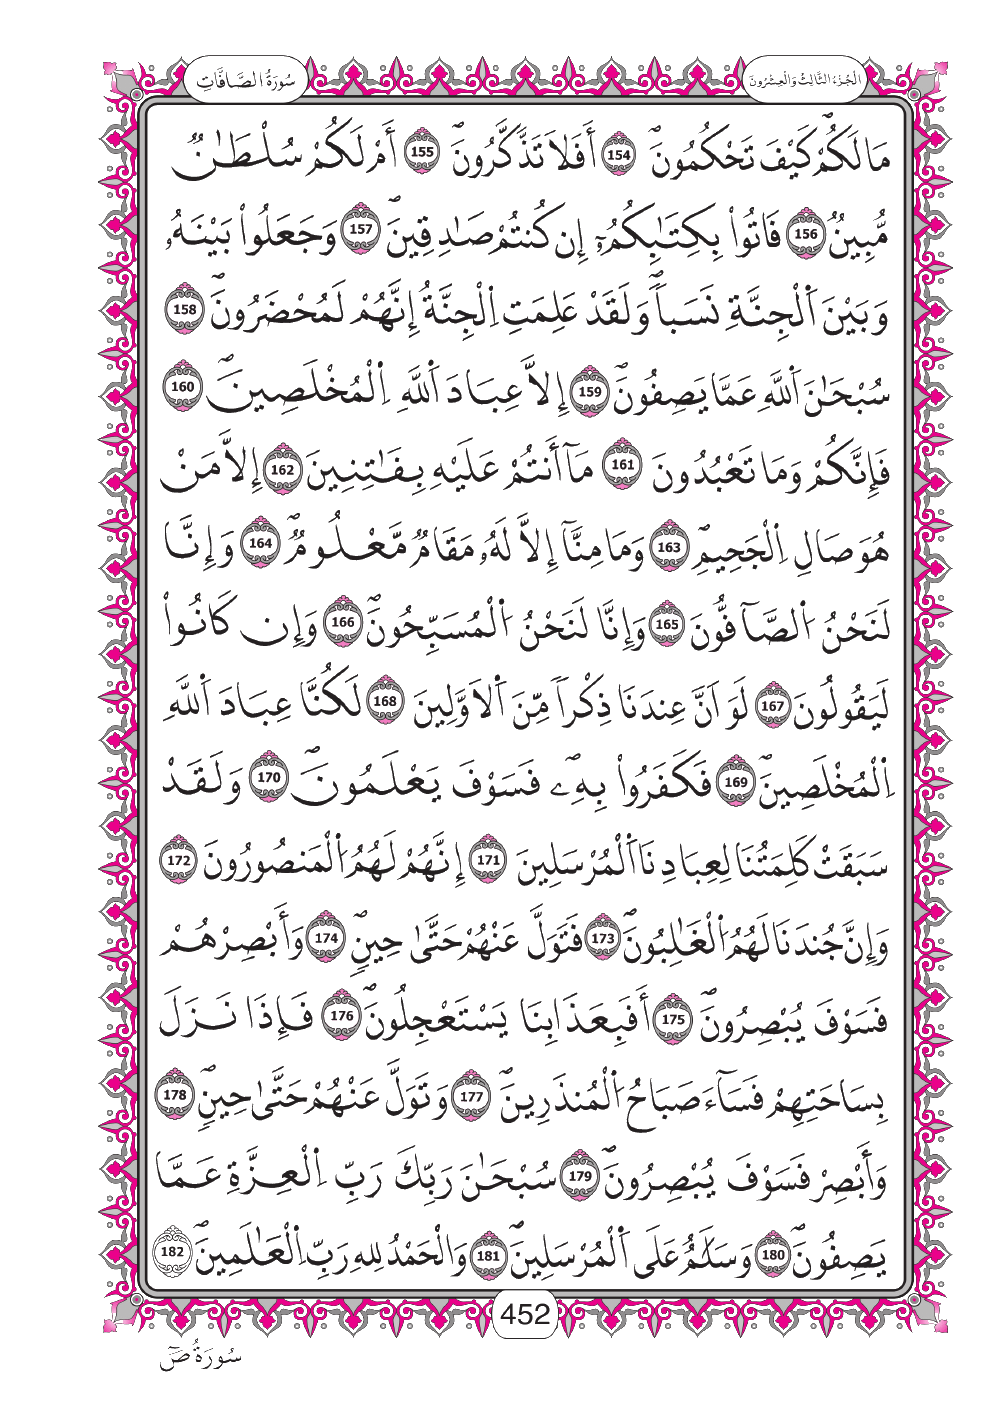 سُورَةُ الصَّافَّاتِ
الْجُزْءُ الثَّالِثُ وَالْعِشْرُونَ
مَا لَكُمْ كَيْفَ تَحْكُمُونَۖ 154 أَفَلَا تَذَّكَّرُونَۖ 155 أَمْ لَكُمْ سُلْطَٰنٞ
مُّبِينٞ 156 فَاتُواْ بِكِتَٰبِكُمُۥٓ إِن كُنتُمْ صَٰدِقِينَۖ 157 وَجَعَلُواْ بَيْنَهُۥ
وَبَيْنَ اَ۬لْجِنَّةِ نَسَباٗۖ وَلَقَدْ عَلِمَتِ اِ۬لْجِنَّةُ إِنَّهُمْ لَمُحْضَرُونَۖ 158
سُبْحَٰنَ اَ۬للَّهِ عَمَّا يَصِفُونَۖ 159 إِلَّا عِبَادَ اَ۬للَّهِ اِ۬لْمُخْلَصِينَۖ 160
فَإِنَّكُمْ وَمَا تَعْبُدُونَ 161 مَآ أَنتُمْ عَلَيْهِ بِفَٰتِنِينَ 162 إِلَّا مَنْ
هُوَ صَالِ اِ۬لْجَحِيمِۖ 163 وَمَا مِنَّآ إِلَّا لَهُۥ مَقَامٞ مَّعْلُومٞۖ 164 وَإِنَّا
لَنَحْنُ اُ۬لصَّآفُّونَ 165 وَإِنَّا لَنَحْنُ اُ۬لْمُسَبِّحُونَۖ 166 وَإِن كَانُواْ
لَيَقُولُونَ 167 لَوَ اَنَّ عِندَنَا ذِكْراٗ مِّنَ اَ۬لَاوَّلِينَ 168 لَكُنَّا عِبَادَ اَ۬للَّهِ
اِ۬لْمُخْلَصِينَۖ 169 فَكَفَرُواْ بِهِۦۖ فَسَوْفَ يَعْلَمُونَۖ 170 وَلَقَدْ
سَبَقَتْ كَلِمَتُنَا لِعِبَادِنَا اَ۬لْمُرْسَلِينَ 171 إِنَّهُمْ لَهُمُ اُ۬لْمَنصُورُونَ 172
وَإِنَّ جُندَنَا لَهُمُ اُ۬لْغَٰلِبُونَۖ 173 فَتَوَلَّ عَنْهُمْ حَتَّىٰ حِينٖۖ 174 وَأَبْصِرْهُمْ
فَسَوْفَ يُبْصِرُونَۖ 175 أَفَبِعَذَابِنَا يَسْتَعْجِلُونَۖ 176 فَإِذَا نَزَلَ
بِسَاحَتِهِمْ فَسَآءَ صَبَاحُ اُ۬لْمُنذَرِينَۖ 177 وَتَوَلَّ عَنْهُمْ حَتَّىٰ حِينٖۖ 178
وَأَبْصِرْ فَسَوْفَ يُبْصِرُونَۖ 179 سُبْحَٰنَ رَبِّكَ رَبِّ اِ۬لْعِزَّةِ عَمَّا
يَصِفُونَۖ 180 وَسَلَٰمٌ عَلَى اَ۬لْمُرْسَلِينَۖ 181 وَالْحَمْدُ لِلهِ رَبِّ اِ۬لْعَٰلَمِينَۖ 182
452
سُورَةُ صٓ